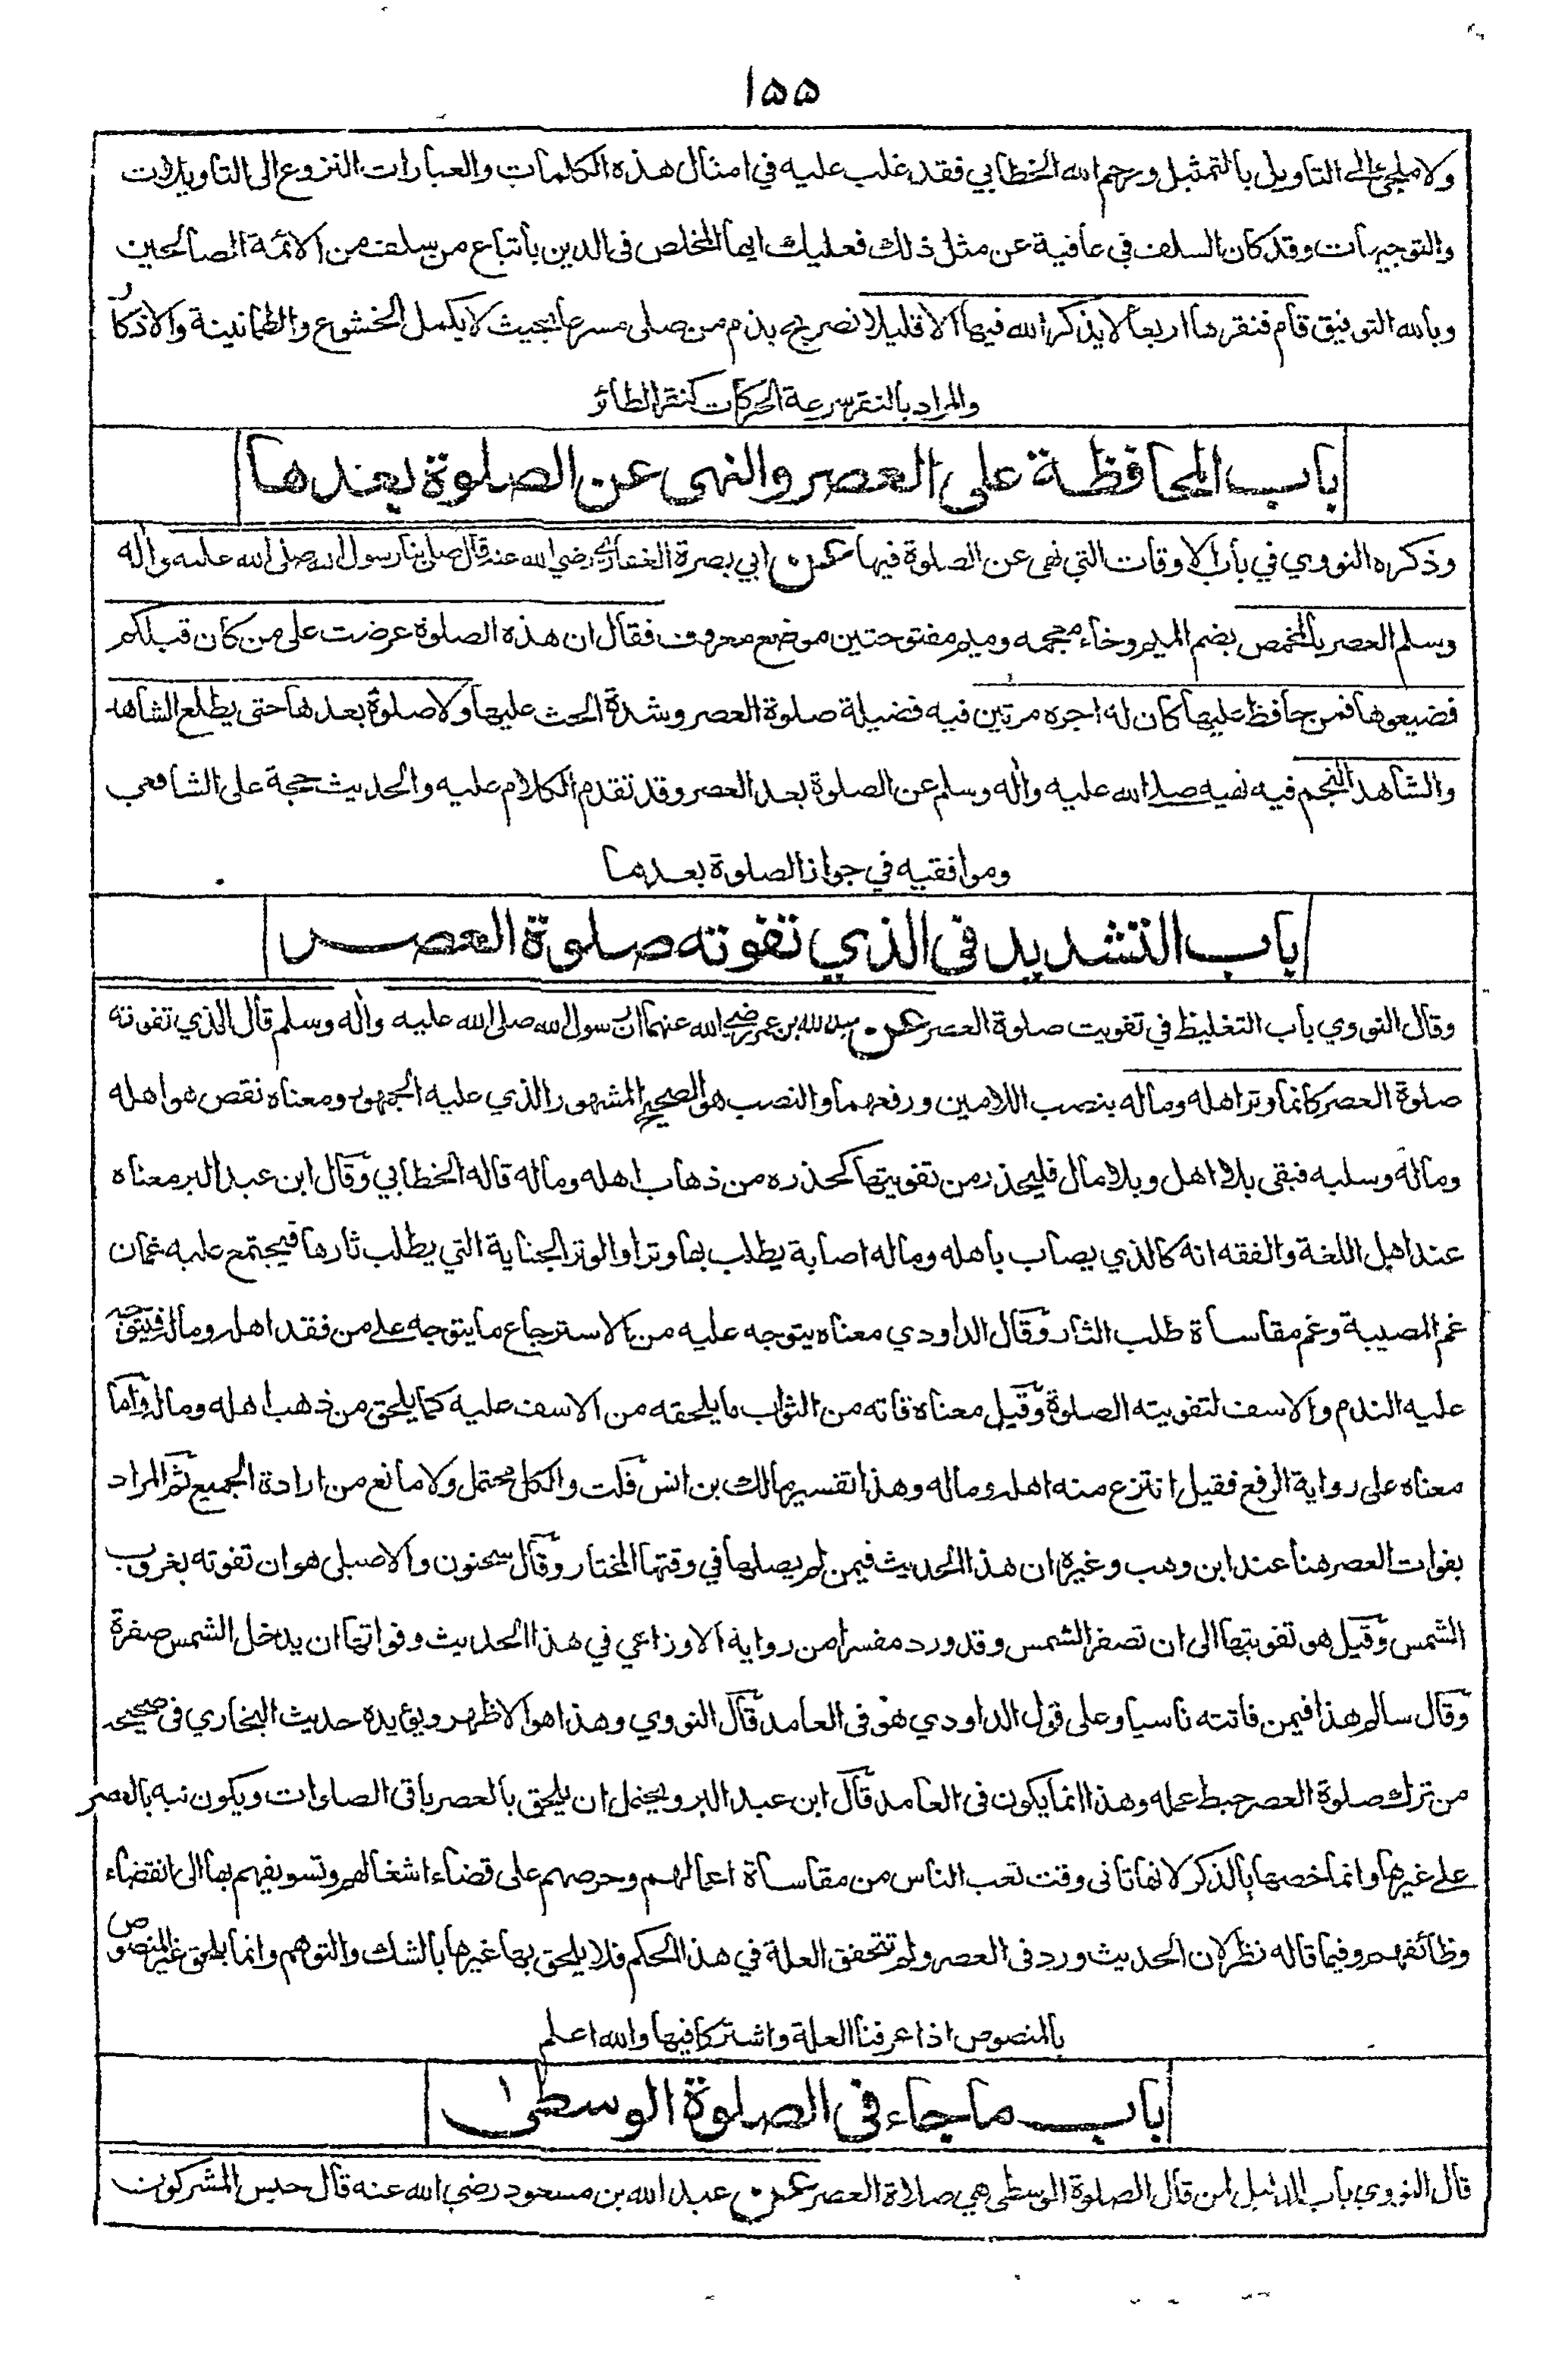 ١٥٥
ولا ملجئ الى التاويل بالتمثيل ورحم الله الخطابي فقد غلب عليه في امثال هذه الكلمات والعبارات النزوع الى التاويلات
والتوجيهات وقد كان السلف في عافية عن مثل ذلك فعليك ايها المخلص فى الدين باتباع من سلف من الائمة الصالحين
وبالله التوفيق قام فنقرها اربعا لا يذكر الله فيها الا قليلا تصريح بذم من صلى مسرعا بحيث لا يكمل الخشوع والطمانينة والاذكار
والمراد بالنقر سرعة الحركات كنقر الطائر
باب المحافظة على العصر والنهى عن الصلوة بعدها
وذكره النووي في باب الاوقات التي نهى عن الصلوة فيها عن ابي بصرة الغفاري رضي الله عنه قال صلى بنا رسول الله صلى الله عليه واله
وسلم العصر بالمخمص بضم الميم وخاء معجمه وميم مفتوحتين موضع معروف فقال ان هذه الصلوة عرضت على من كان قبلكم
فضيعوها فمن حافظ عليها كان له اجره مرتين فيه فضيلة صلوة العصر وشدة الحث عليها ولا صلوة بعدها حتى يطلع الشاهد
والشاهد النجم فيه نهيه صلى الله عليه واله وسلم عن الصلوة بعد العصر وقد تقدم الكلام عليه والحديث حجة على الشافعي
وموافقيه في جواز الصلوة بعدها
باب التشديد فى الذي تفوته صلوة العصر
وقال النووي باب التغليظ في تفويت صلوة العصر عن عبد الله بن عمر رضي الله عنهما ان رسول الله صلى الله عليه واله وسلم قال الذي تفوته
صلوة العصر كانما وتر اهله وماله بنصب اللامين ورفعهما والنصب هو الصحيح المشهور الذي عليه الجمهور ومعناه نقص هو اهله
وماله وسلبه فبقى بلا اهل وبلا مال فليحذر من تفويتها كحذره من ذهاب اهله وماله قاله الخطابي وقال ابن عبد البر معناه
عند اهل اللغة والفقه انه كالذي يصاب باهله وماله اصابة يطلب بها وترا والوتر الجناية التي يطلب ثارها فيجتمع عليه غمان
غم المصيبة وغم مقاساة طلب الثار وقال الداودي معناه يتوجه عليه من الاسترجاع ما يتوجه على من فقد اهله وماله فيتوجه
عليه الندم والاسف لتفويته الصلوة وقيل معناه فاته من الثواب ما يلحقه من الاسف عليه كما يلحق من ذهب اهله وماله واما
معناه على رواية الرفع فقيل انتزع منه اهله وماله وهذا تفسير مالك بن انس قلت والكل محتمل ولا مانع من ارادة الجميع ثم المراد
بفوات العصر هنا عند ابن وهب وغيره ان هذا الحديث فيمن لم يصلها في وقتها المختار وقال سحنون والاصيلى هو ان تفوته بغروب
الشمس وقيل هو تفويتها الى ان تصفر الشمس وقد ورد مفسرا من رواية الاوزاعي في هذا الحديث وفواتها ان يدخل الشمس صفرة
وقال سالم هذا فيمن فاتته ناسيا وعلى قول الداودي هو فى العامد قال النووي وهذا هو الاظهر ويؤيده حديث البخاري فى صحيحه
من ترك صلوة العصر حبط عمله وهذا انما يكون فى العامد قال ابن عبد البر ويحتمل ان يلحق بالعصر باقى الصلوات ويكون نبه بالعصر
على غيرها وانما خصها بالذكر لانها تاتى وقت تعب الناس من مقاساة اعمالهم وحرصهم على قضاء اشغالهم وتسويفهم بها الى انقضاء
وظائفهم وفيما قاله نظر لان الحديث ورد فى العصر ولم تتحقق العلة في هذا الحكم فلا يلحق بها غيرها بالشك والتوهم وانما يلحق غير المنصوص
بالمنصوص اذا عرفنا العلة واشتركا فيها والله اعلم
باب ما جاء فى الصلوة الوسطى
قال النووي باب الدليل لمن قال الصلوة الوسطى هي صلاة العصر عن عبد الله بن مسعود رضي الله عنه قال حبس المشركون